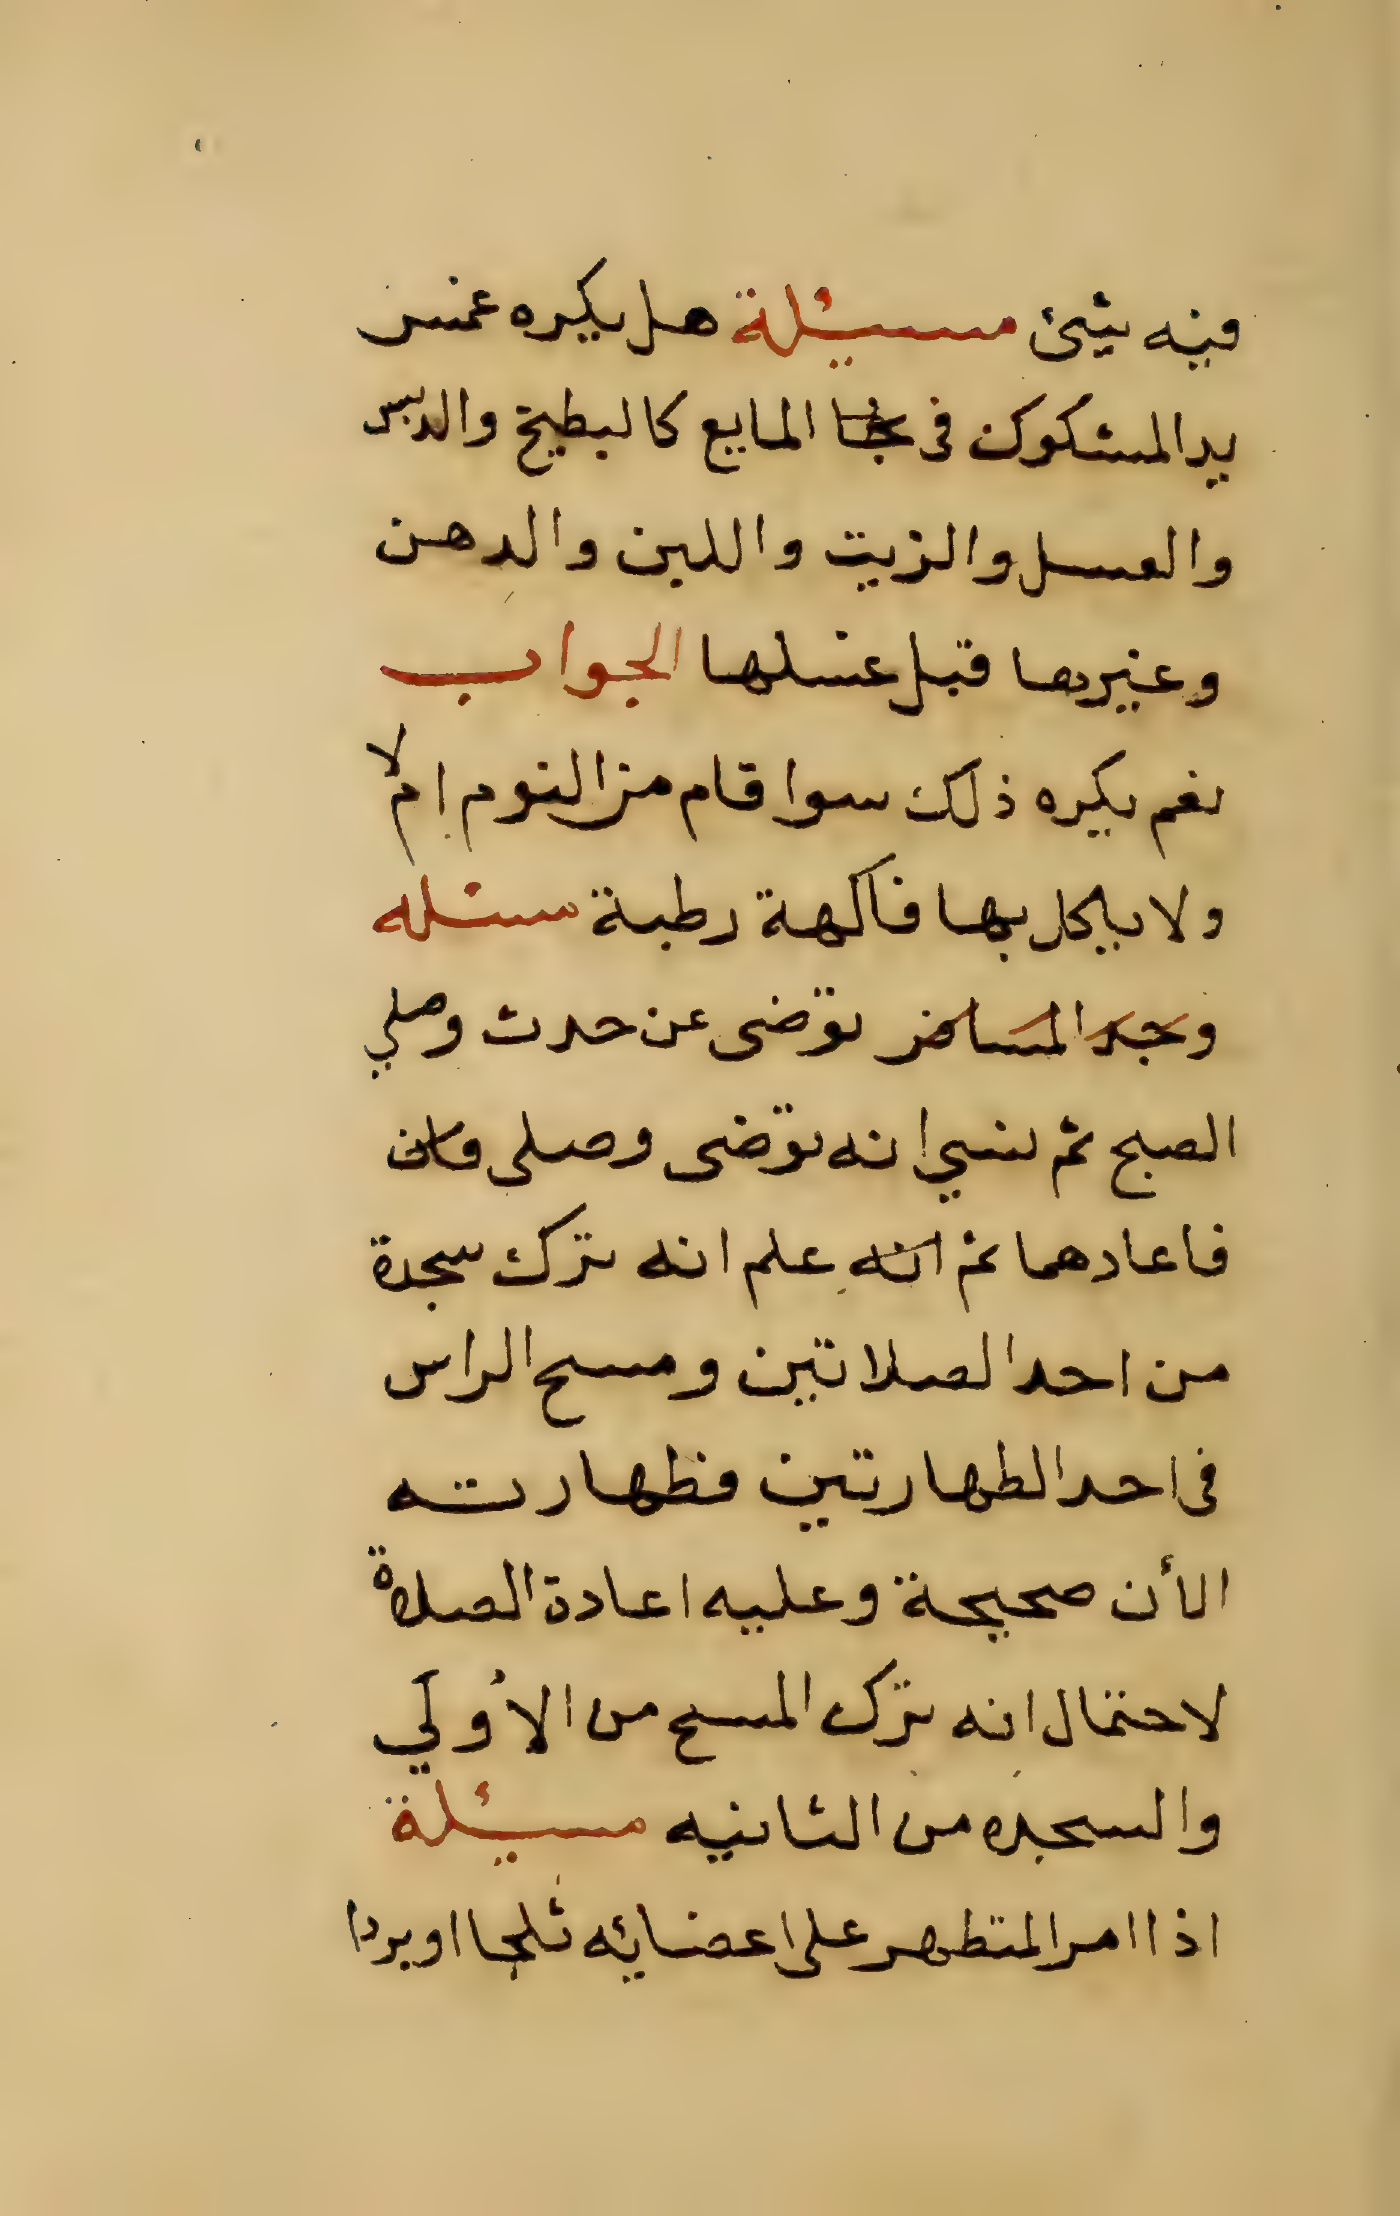 فيه شئ مسئلة هل يكره غمس
يد المشكوك في المايع كالبطيخ والدبس
والعسل والزيت واللبن والدهن
وغيرها قبل غسلها الجواب
نعم يكره ذلك سوا قام من النوم ام لا
ولا ياكل بها فاكهة رطبة مسئله
توضى عن حدث وصلي
الصبح ثم نسي انه توضى وصلى
فاعادهما ثم انه علم انه ترك سجدة
من احد الصلاتين ومسح الراس
في احد الطهارتين فطهارته
الأن صحيحة وعليه اعادة الصلاة
لاحتمال انه ترك المسح من الأولي
والسجده من الثانيه مسئلة
اذا امر المتطهر على اعضائه ثلجا او بردا